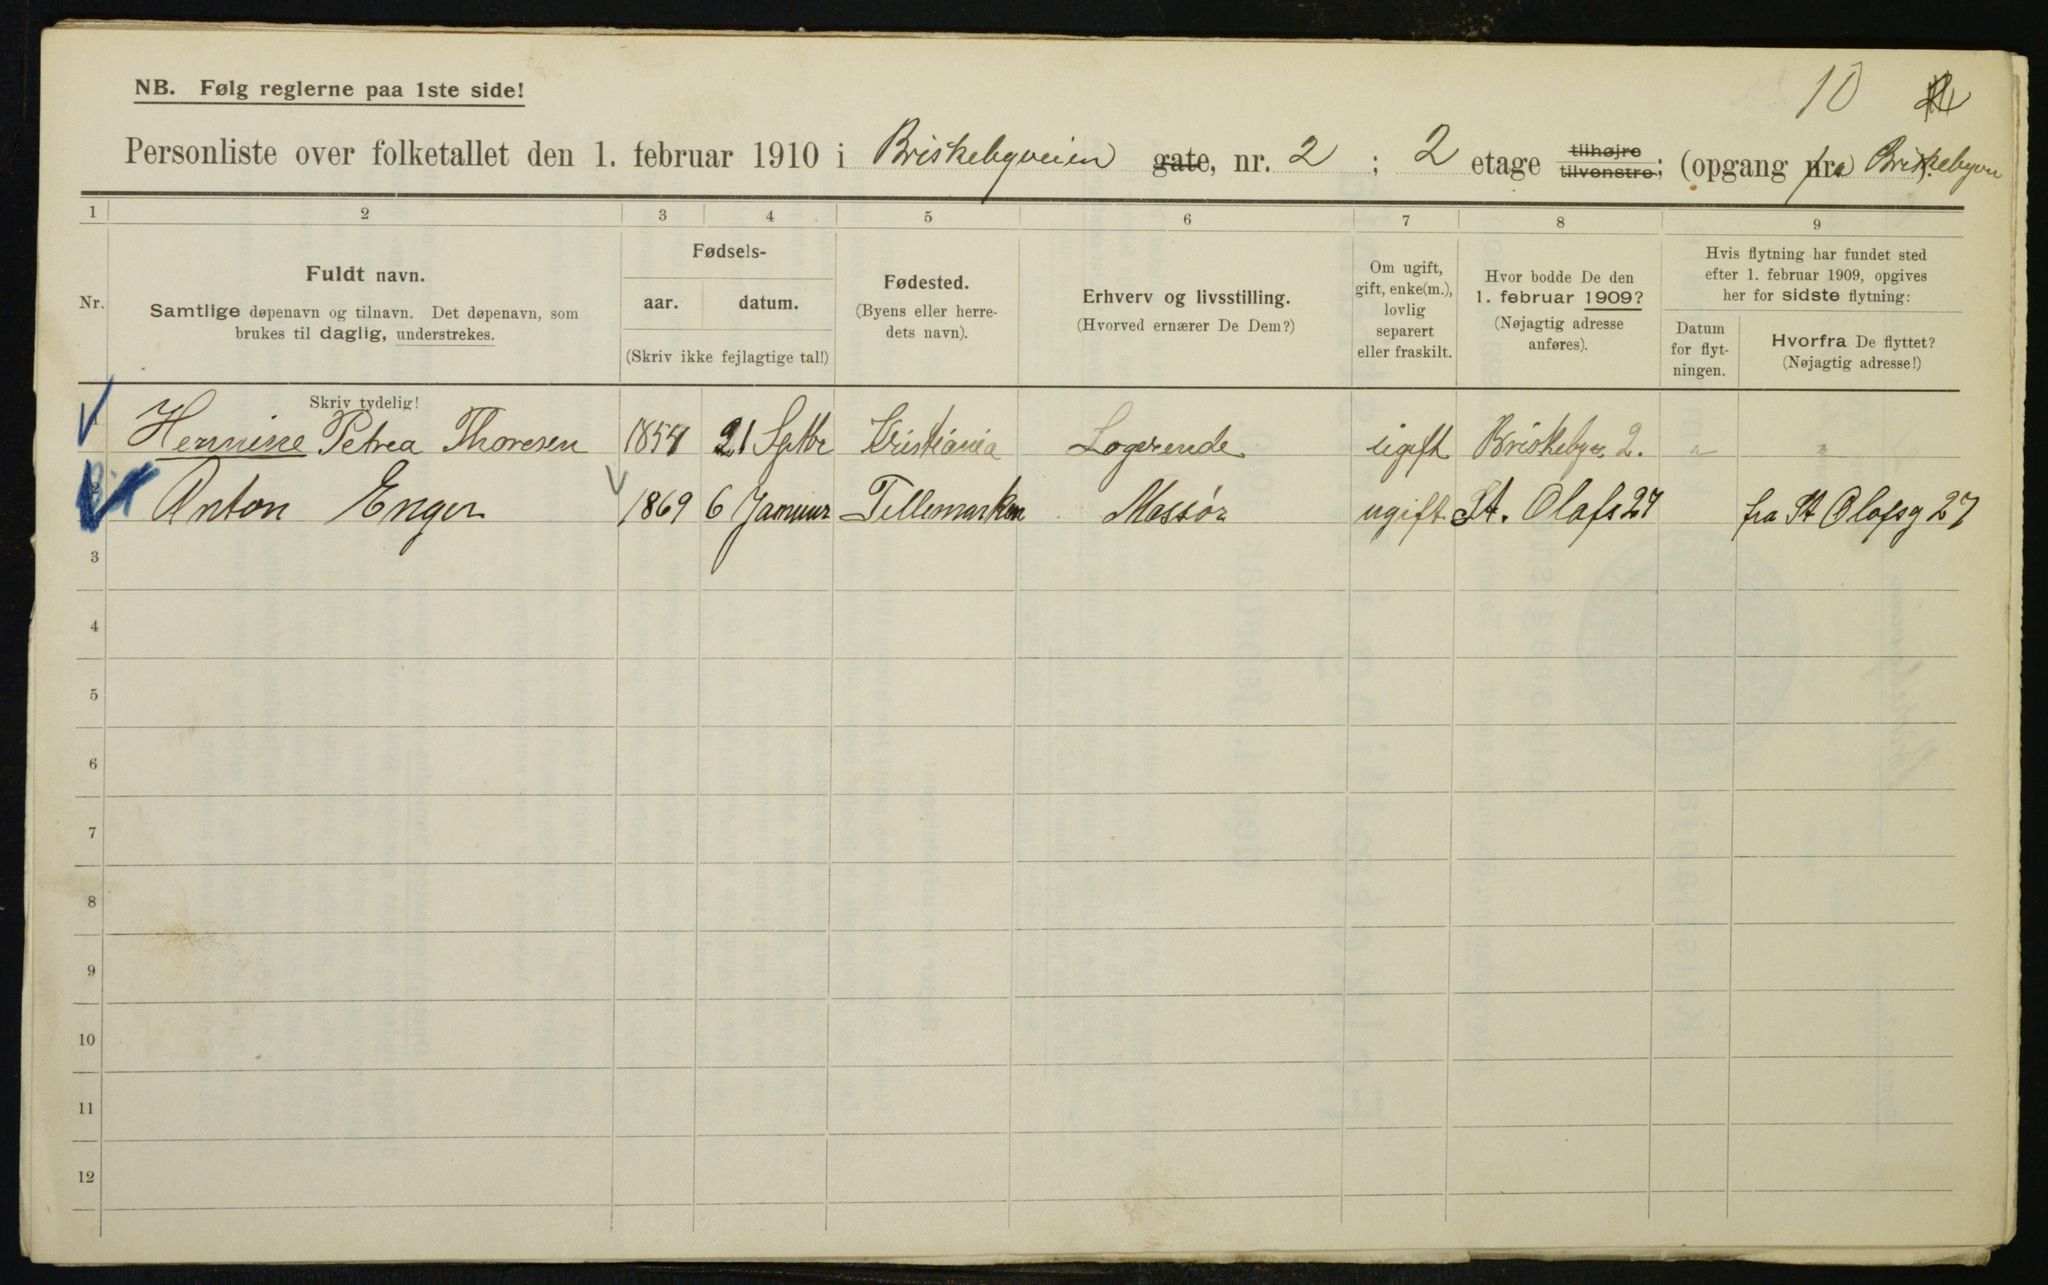 10
NB. Følg reglerne paa 1ste side!
Personliste over folketallet den 1. februar 1910 i Briskebyveien gate, nr. 2 ; 2 etage tilhøjre tilvenstre; (opgang fra Briskebyvn
1 2 3 4 5 6 7 8 9
Nr.
Fuldt navn.
Samtlige døpenavn og tilnavn. Det døpenavn, som
brukes til daglig, understrekes.
Skriv tydelig!
Fødsels-
aar. datum.
(Skriv ikke fejlagtige tal!)
Fødested.
(Byens eller herre-
dets navn).
Erhverv og livsstilling.
(Hvorved ernærer De Dem?)
Om ugift,
gift, enke(m.),
lovlig
separert
eller fraskilt.
Hvor bodde De den
1. februar 1909?
(Nøjagtig adresse
anføres).
Hvis flytning har fundet sted
efter 1. februar 1909, opgives
her for sidste flytning:
Datum
for flyt-
ningen.
Hvorfra De flyttet?
(Nøjagtig adresse!)
Hermine Petrea Thoresen 1854 21 Sptbr Kristiania Logerende ugift Briskebyv. 2. " "
Anton Enger 1869 6 Januar Tellemarken Massør ugift St. Olafs 27 fra St Olafsg 27
3
4
5
6
7
8
9
10
11
12